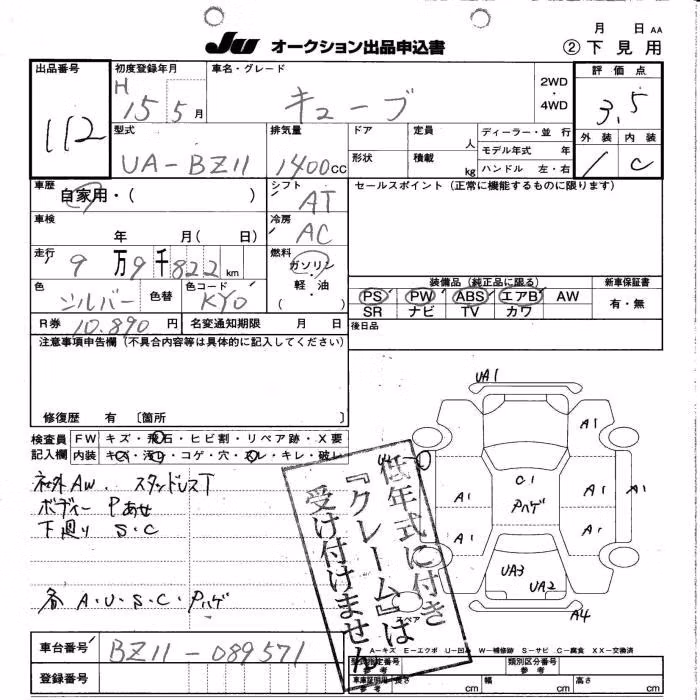 JU オークション出品申込書
月 日 AA
② 下見用
出品番号
112
初度登録年月
H 15 5 月
車名・グレード
キューブ
2WD ・ 4WD
評価点
3.5
外装 内装
/ C
型式
UA-BZ11
排気量
1400cc
ドア 定員 人
形状 積載 kg
ディーラー・並行
モデル年式 年
ハンドル 左・右
車歴
自家用・( )
シフト
AT
セールスポイント(正常に機能するものに限ります)
車検
年 月( 日)
冷房
AC
走行
9万9千822 km
燃料
ガソリン・軽油
( )
色
シルバー
色替
色コード
KYO
装備品(純正品に限る)
PS PW ABS エアB AW
SR ナビ TV カワ
新車保証書
有・無
R券 10.890 円
名変通知期限 月 日
後日品
注意事項申告欄(不具合内容等は具体的に記入してください)
修復歴 有 〔箇所 〕
検査員記入欄
FW キズ・飛石・ヒビ割・リペア跡・X要
内装 キズ・汚れ・コゲ・穴・スレ・キレ・破レ
社外AW. スタッドレスT
ボディー Pあせ
下廻り S・C
各 A・U・S・C・Pハゲ
低年式に付き
『クレーム』は
受け付けません
UA1
A1
C1
Pハゲ
A1
A1
A1
A1
A1
UA3
UA2
A4
スペア
A-キズ E-エクボ U-凹み W-補修跡 S-サビ C-腐食 XX-交換済
車台番号
BZ11-089571
登録番号
型式指定番号 参考
類別区分番号 参考
車庫証明用 参考
長さ cm
幅 cm
高さ cm